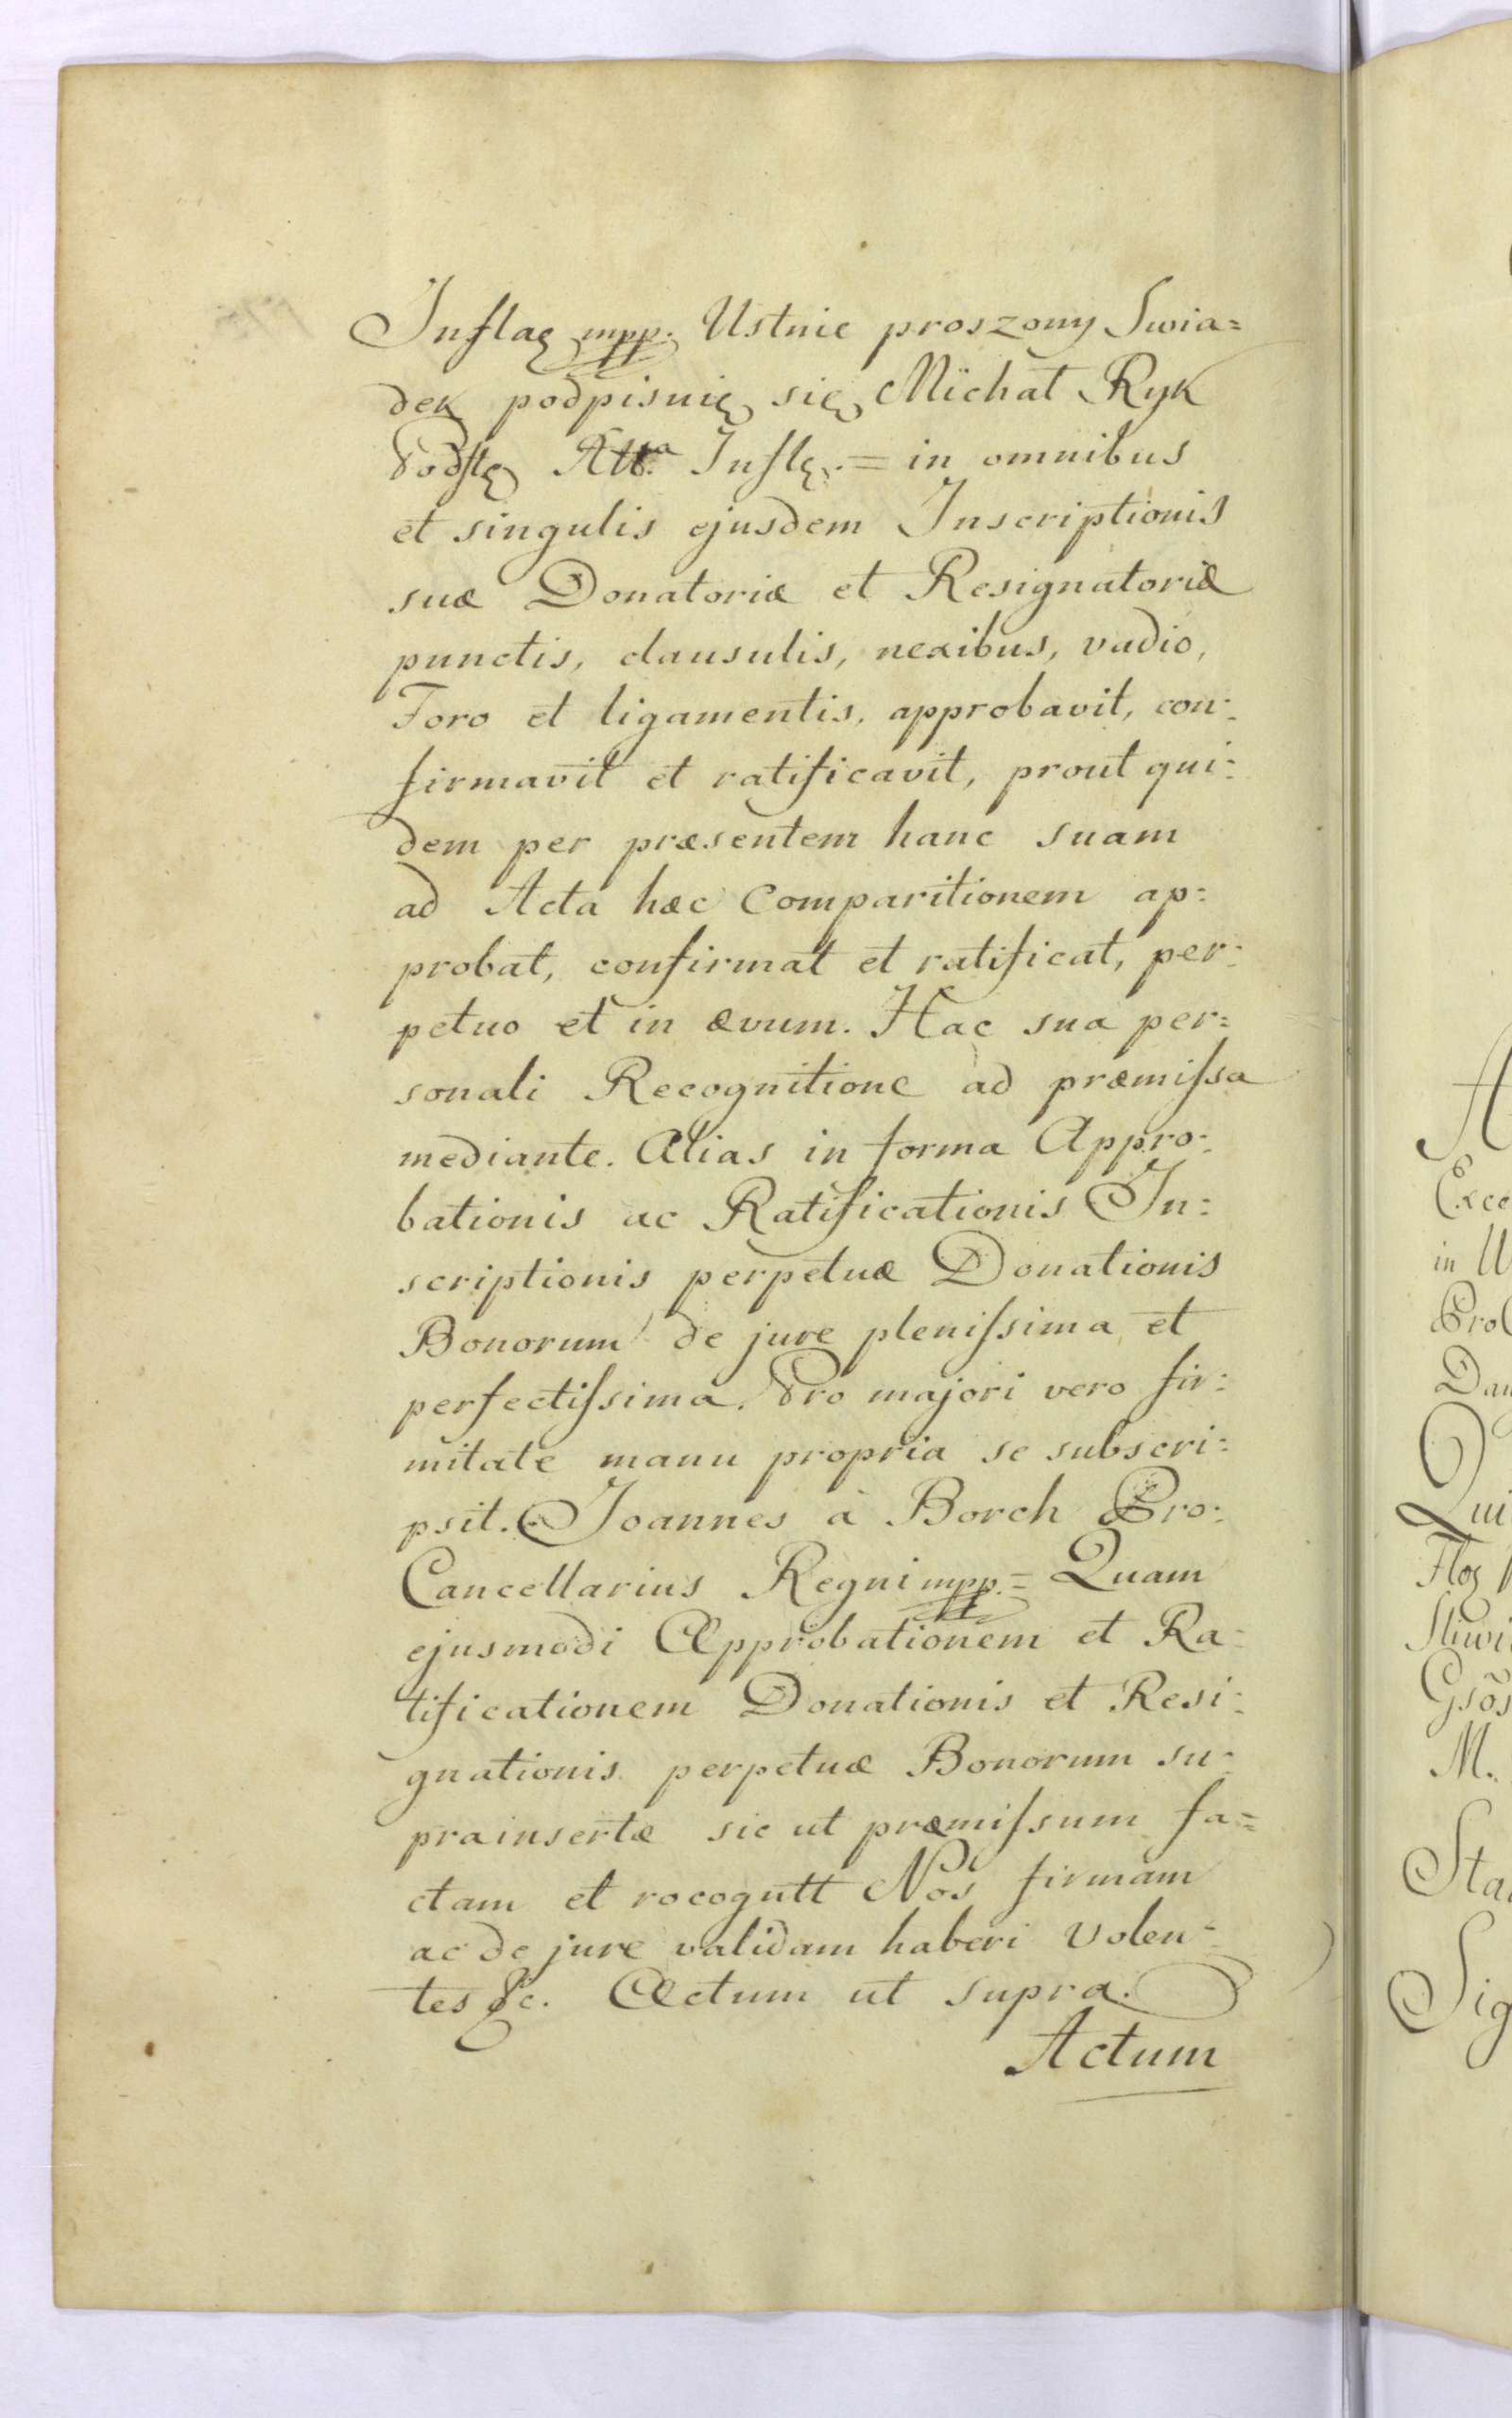 Inflaę mpp. Ustnie proszony Swia=
dek podpisuię się Michał Ryk
Podstę Inflę. = in omnibus
et singulis ejusdem Inscriptionis
suæ Donatoriæ et Resignatoriæ
punctis, clausulis, nexibus, vadio,
Foro et ligamentis, approbavit, con=
firmavit et ratificavit, prout qui=
dem per præsentem hanc suam
ad Acta hæc Comparitionem ap=
probat, confirmat et ratificat, per=
petuo et in ævum. Hac sua per=
sonali Recognitione ad præmissa
mediante. Alias in forma Appro=
bationis ac Ratificationis In=
scriptionis perpetuæ Donationis
Bonorum de jure plenissima et
perfectissima. Pro majori vero fir=
mitate manu propria se subscri=
psit. Joannes à Borch Pro=
Cancellarius Regni mpp. = Quam
ejusmodi Approbationem et Ra=
tificationem Donationis et Resi=
gnationis perpetuæ Bonorum su=
prainsertæ sic ut præmissum fa=
ctam et rocogntt Nos firmam
ac de jure validam haberi volen=
tes &c. Actum ut supra.
Actum
A
Exce
in W
Pro
Dan
Qui
Flos
Sliwi
Gsõs
M.
Sta
Sig